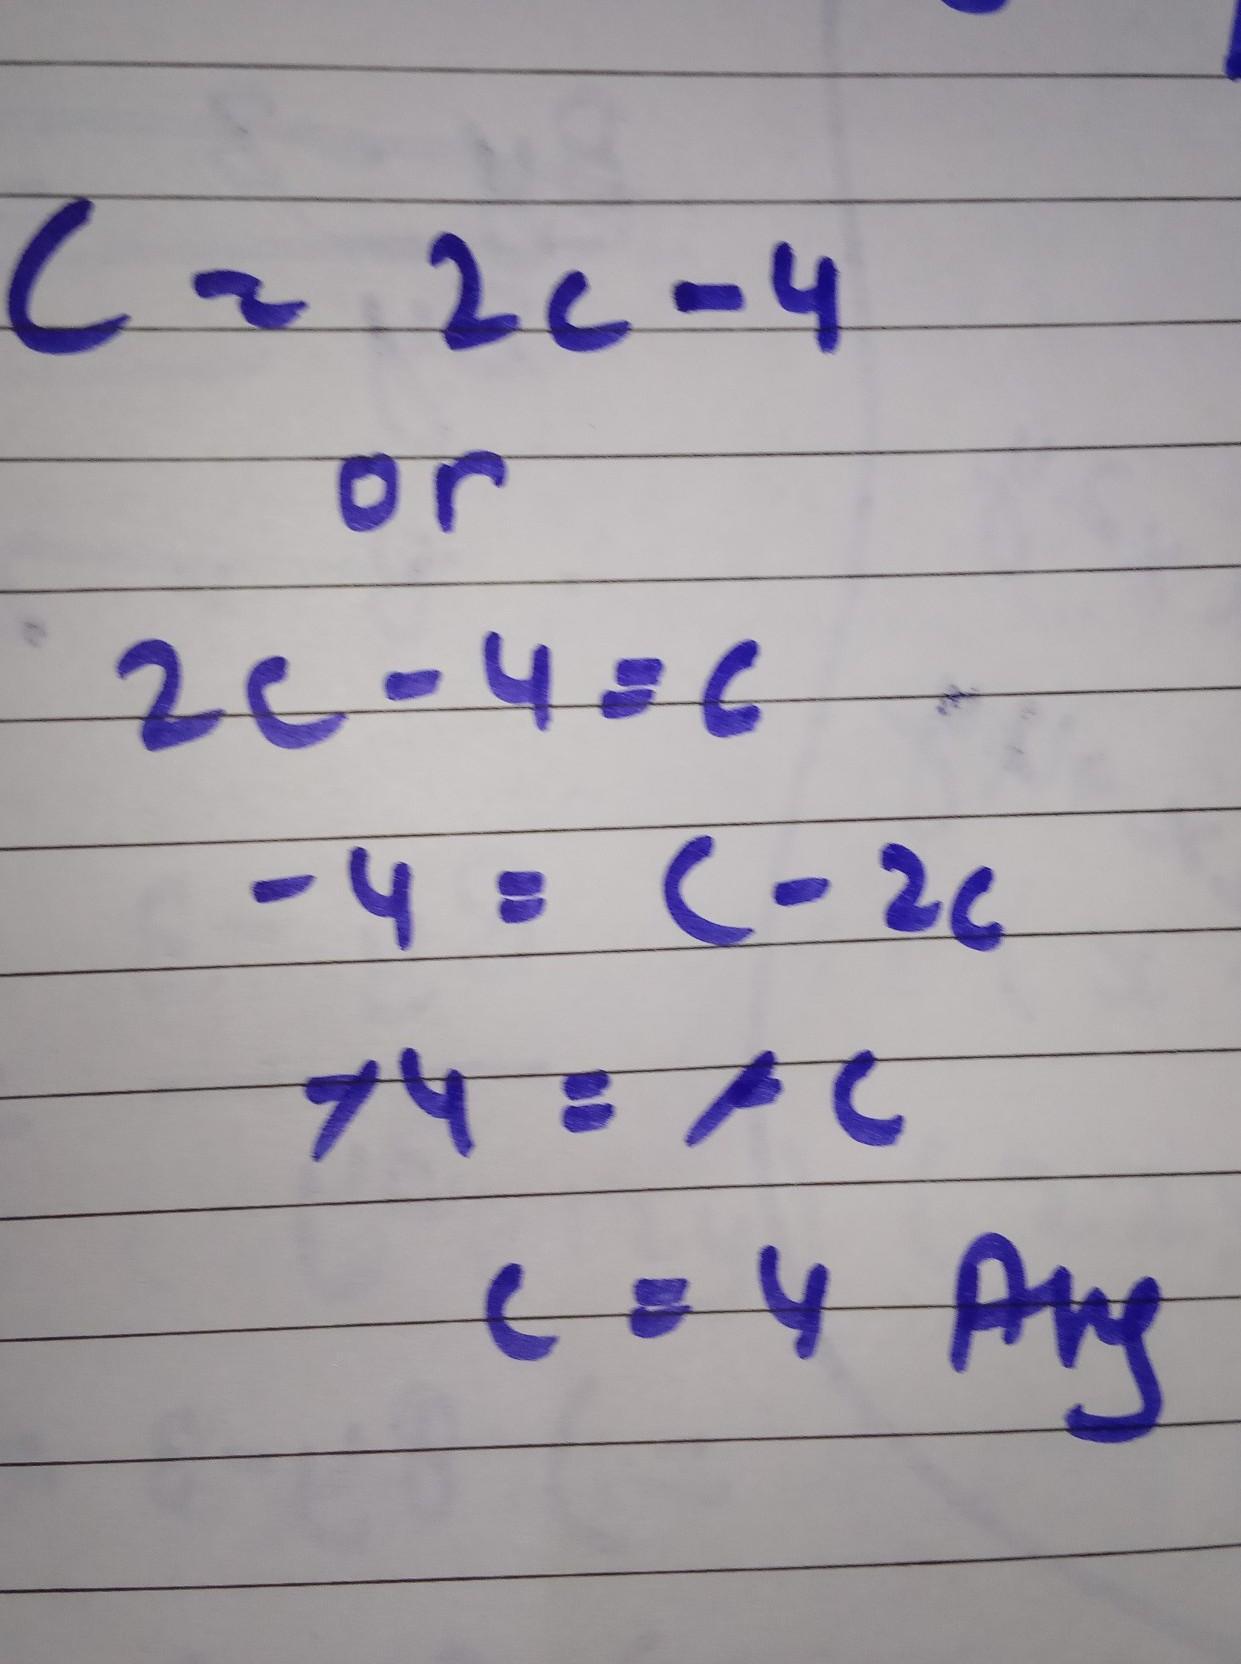 C = 2c - 4
or
2c - 4 = c
- 4 = c - 2c
- 4 = - c
c = 4 Ans